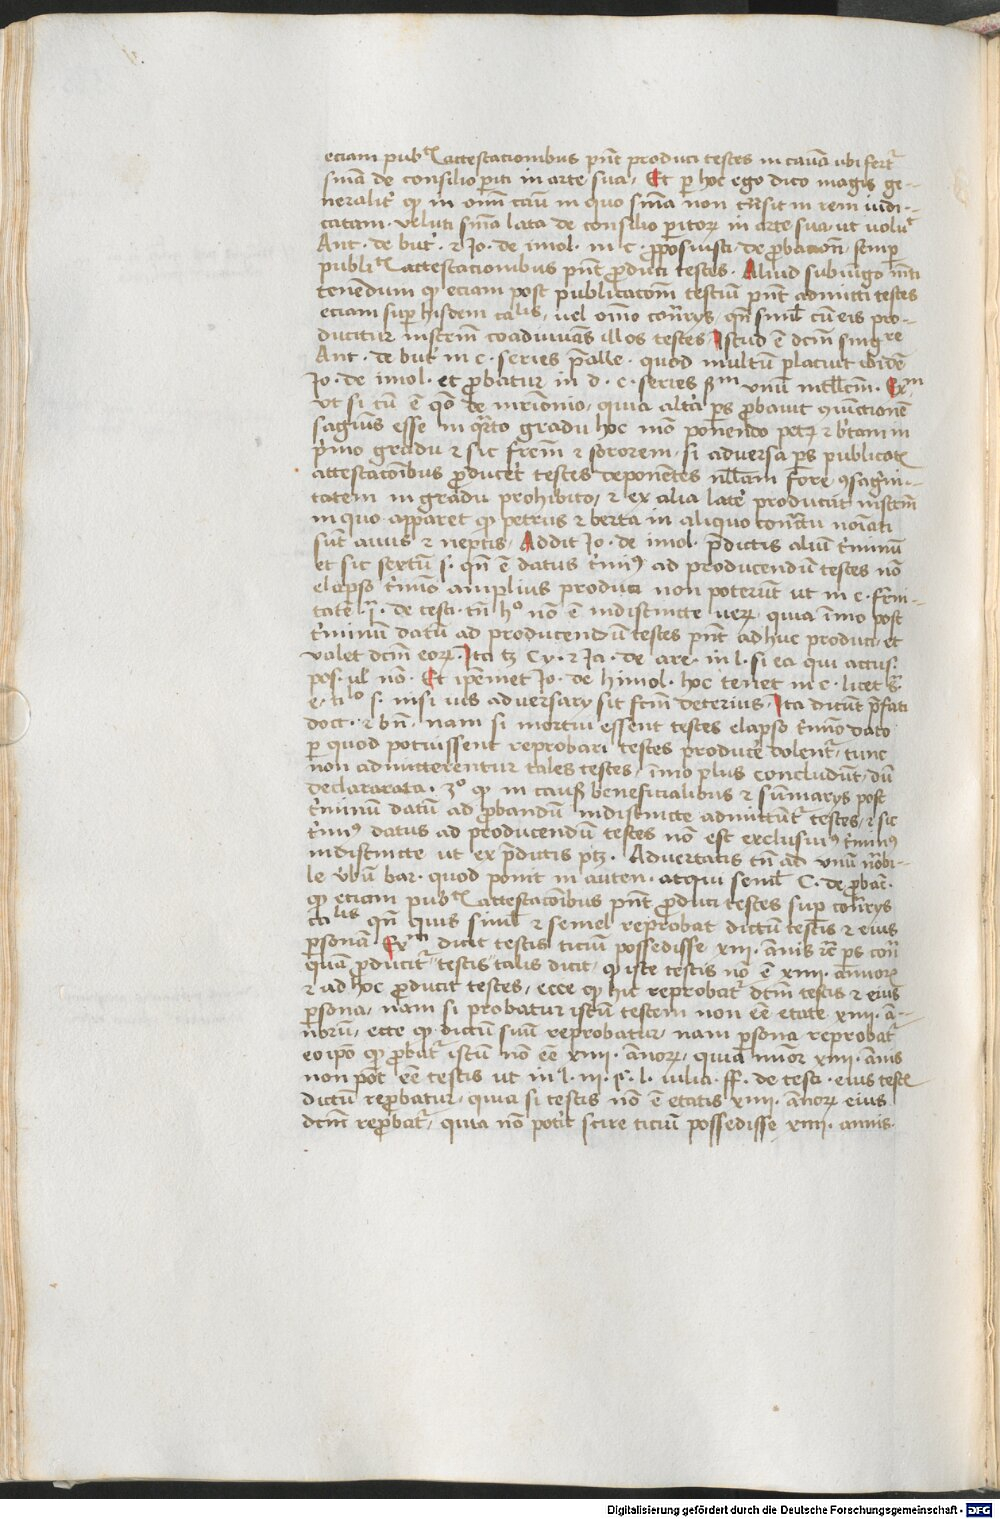 eciam pub^cis attestacionibus pn̄t produci testes in causa ubi fertᷣ
sn̄ia de consilio p̄iti in arte sua / Et p̱ hoc ego dico magis ge-
neralitᷣ qɔ in om̄i cau̅ in quo sn̄ia non tn̄sit in rem iudi-
catam · veluti sn̄ia lata de consilio p̱itoꝝ in arte sua ut voluᷣ
Ant · de but · ⁊ Jo · de imol · in c · ꝓposuisti de ꝓbacion̄ · semp̱
publi^cis attestacionibus pn̄t ꝓduci testes · Aliud subiungo
tenendum qɔ eciam post publicacōm̄ testiū pn̄t admitti testes
eciam sup̱ hisdem
ducitur instrm̄ coadiuuās illos testes / Istud ē dc̄m
Ant · de but in c · series p̄alle · quod multū placuit ibidē
Jo · de imol · et ꝓbatur in d · c · series
ut si cū ē qō de mr̄ionio / quia altᷓ ps ꝓbauit
esse in qᷓrto gradu hoc mō ponendo petꝝ ⁊ b̄tam in
p̄mo gradu ⁊ sic frēm ⁊ sororem / si adversa ps publicatis
attestacōibus ꝓducet testes deponentes nullam fore ɔsagini-
tatem in gradu prohibito / ⁊ ex alia latē producat instrm̄
in quo apparet qɔ petrus ⁊ berta in aliquo conᷓctu noīati
sūt auus ⁊ neptis / Addit Jo · de imol · p̄dictis aliū t̄minū
et sic sextū s · qn̄ ē datus t̄mi9 ad producendū testes nō
elapso t̄mīo amplius produci non poterūt ut in c · fr̄ni-
tatē · de testi · tn̄ h^o nō ē indistincte veꝝ · quia ī̄mo post
t̄minū datū ad producendū testes pn̄t adhuc produci / et
valet dc̄m eoꝝ · Ita tꝫ Cy · ⁊ Ja · de are · in l · si ea qui accus̄
pos · ul nō · Et ip̄emet Jo · de himol · hoc tenet in c · licet
e · ti^lo s · nisi ius adversarÿ sit fcm̄ deterius · Ita dicūt p̄fati
doct · ⁊ bn̄ · nam si mortui essent testes elapso t̄mīo dato
p̱ quod potuissent reprobari testes producᷣe volentᷣ / tunc
non admitterentur tales testes / ī̄mo plus concludūt / dū
declararata · 3^o qɔ in causis beneficialibus ⁊ sūmarÿs post
t̄minū datū ad ꝓbandū indistincte admittūtᷣ testes / ⁊ sic
t̄mi9 datus ad producendū testes nō est exclusiu9 t̄mi9
indistincte ut ex p̄dictis ptꝫ · Advertatis tn̄ ad unū nōbi-
le v̄bū bar · quod ponit in auten · atqui semel C · de ꝓbac̄ ·
qɔ eciam pub^cis attestacōibus pn̄t ꝓduci testes sup̱ conᷓrys
qn̄ quis simul ⁊ semel reprobat dictū testis ⁊ eius
p̱sonā Ex^m dicit testis ticiū possedisse xiii · annis
quā ꝓducitᷣ testis talis dicit / qɔ iste testis nō ē xiiii · annoꝝ
⁊ ad hoc ꝓducit testes / ecce qɔ hic reprobatᷣ dc̄m testis ⁊ eius
p̱sona / nam si probatur istū testem non eē etate xiiii · a-
nōrū / ecce qɔ dictū suū reprobatur / nam p̱sona reprobatᷣ
eoipō qɔ ꝓbatᷣ istū nō eē xiiii · ānoꝝ / quia minor xiiii · ānis
non pōt eē testis ut in l · iii · § · l · iulia · ff · de testi · eius testis
dictū reprobatur / quia si testis nō ē etatis xiiii · ānoꝝ eius
dcm̄ reꝓbatᷣ / quia nō potuit scire ticiū possedisse xiiii · annis ·
Digitalisierung gefördert durch die Deutsche Forschungsgemeinschaft - DFG